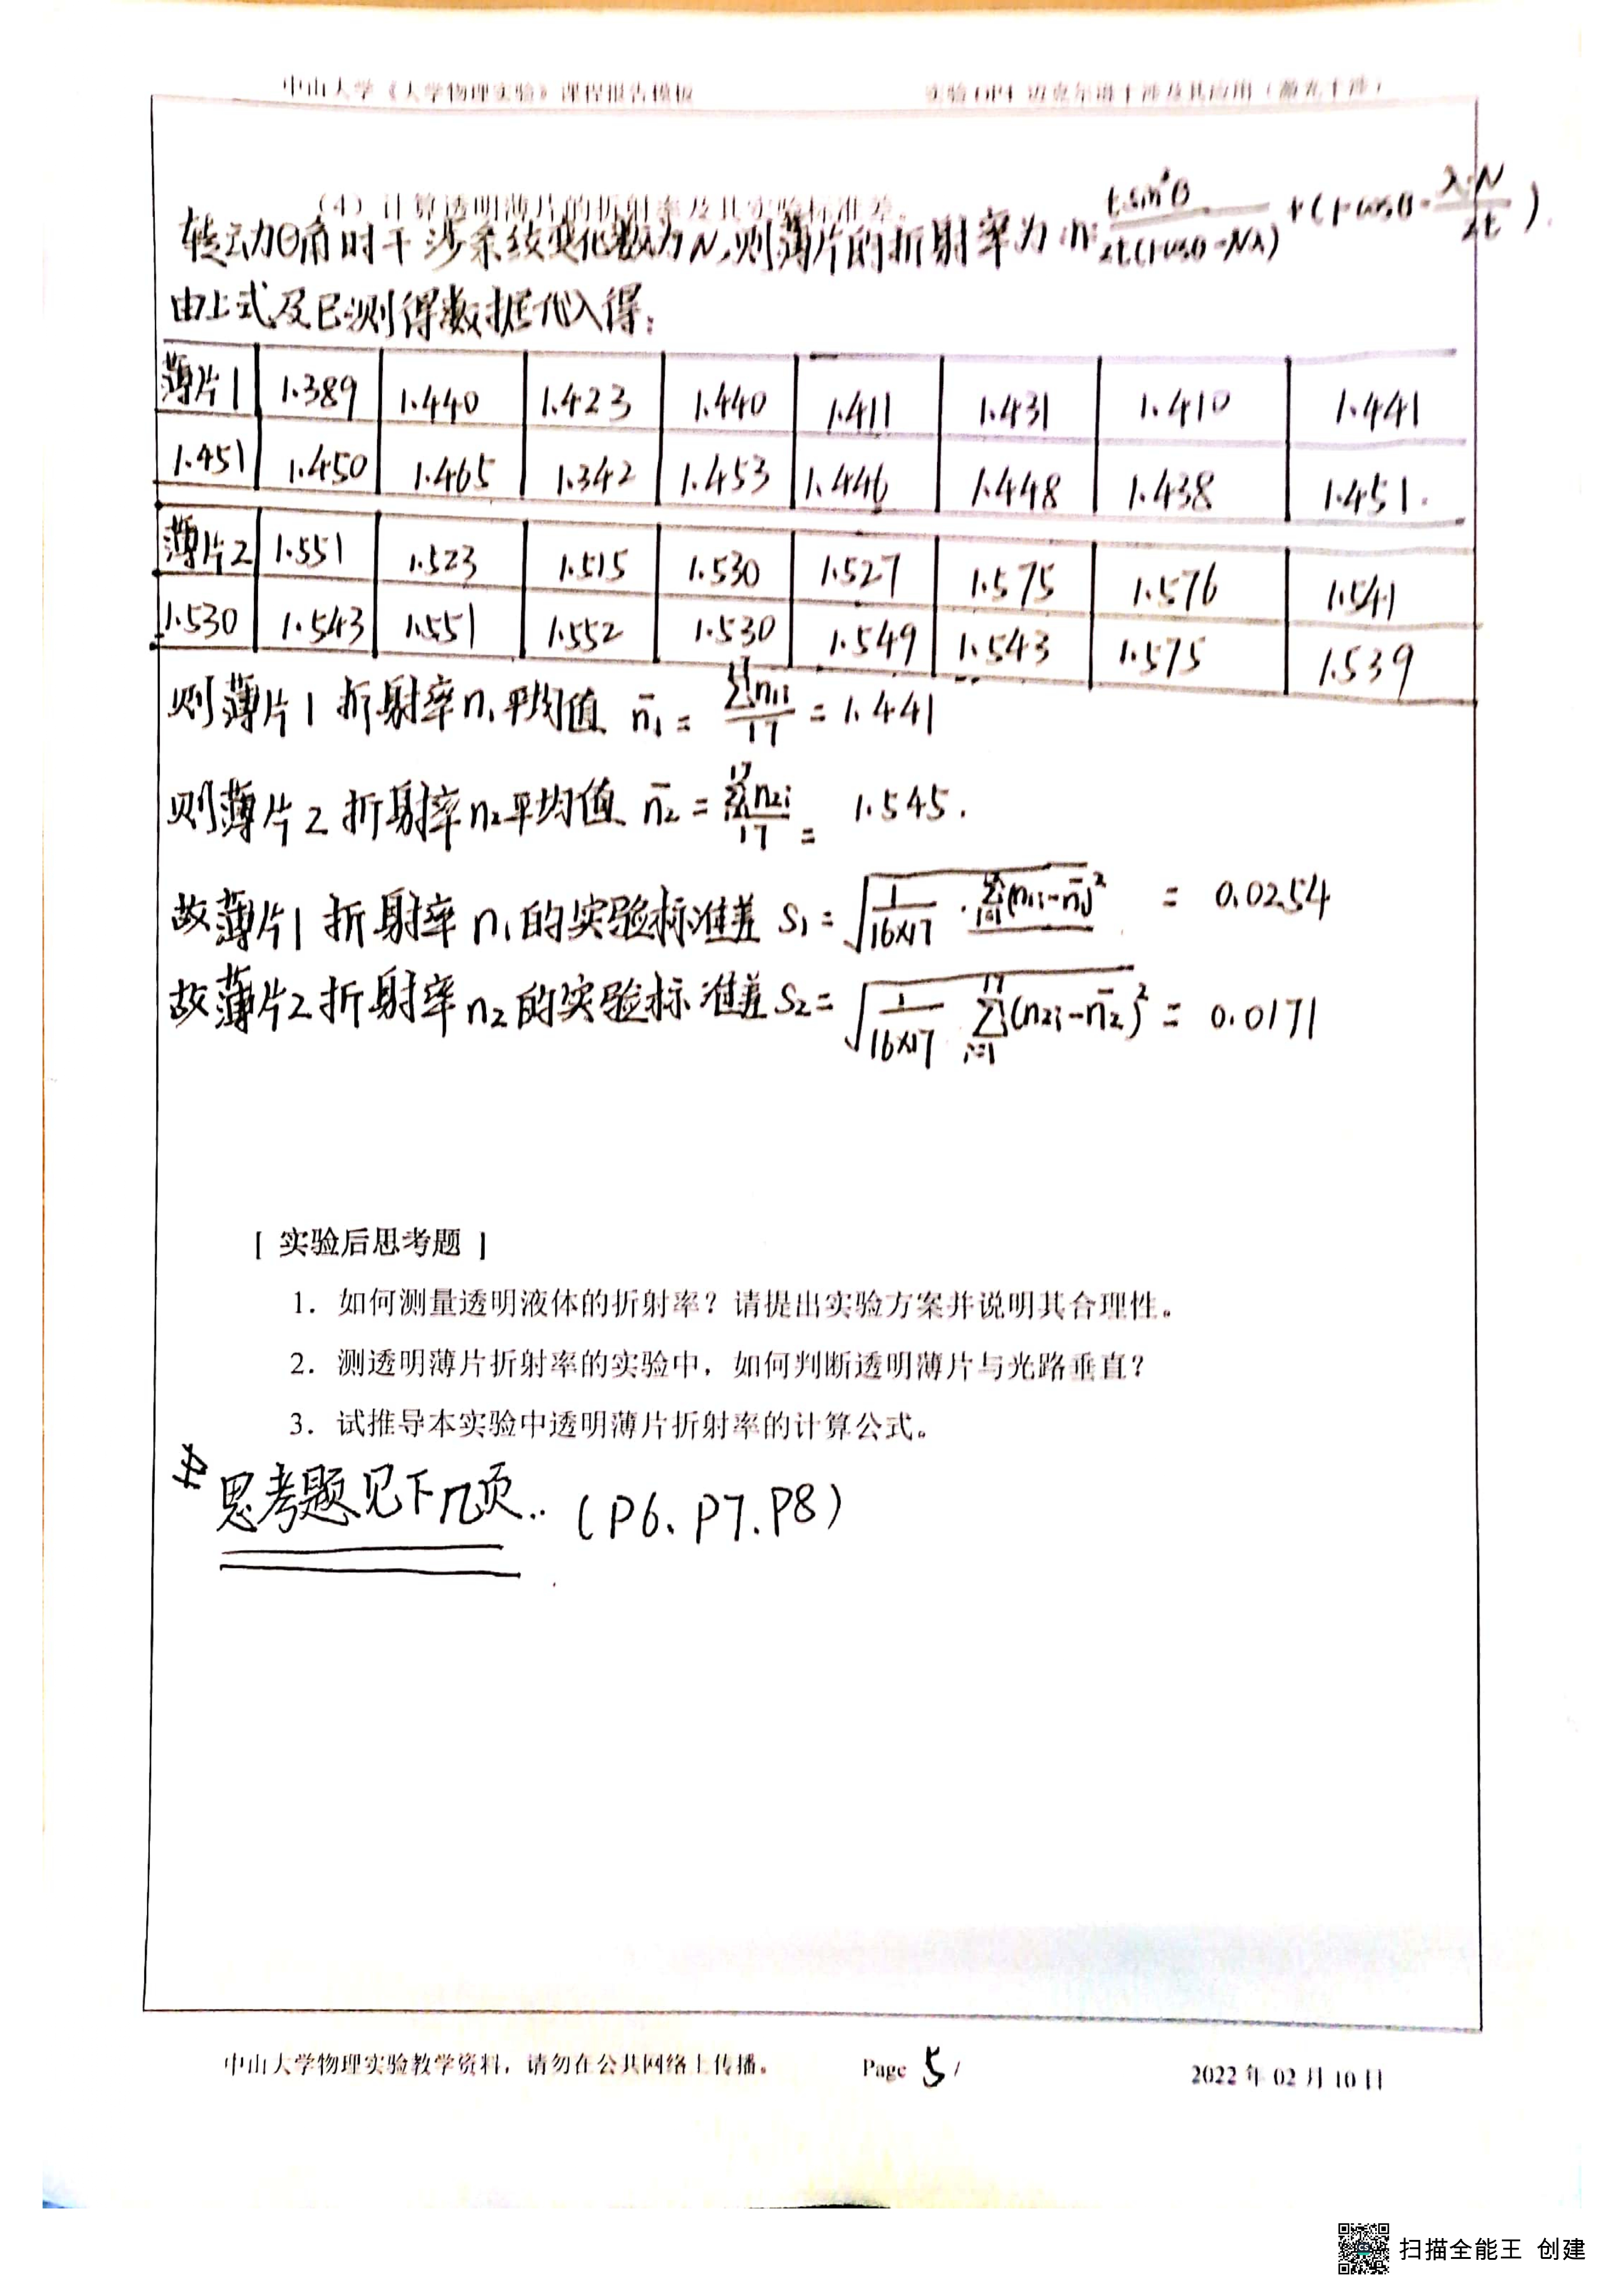 中山大学《大学物理实验》课程报告模板 实验 OP4 迈克尔逊干涉及其应用（激光干涉）
（4）计算透明薄片的折射率及其实验标准差。
转动θ角时干涉条纹变化数为N,则薄片的折射率为:n=
由上式及已测得数据代入得:
薄片1 1.389 1.440 1.423 1.440 1.411 1.431 1.410 1.441
1.451 1.450 1.465 1.342 1.453 1.446 1.448 1.438 1.451.
薄片2 1.551 1.523 1.515 1.530 1.527 1.575 1.576 1.541
1.530 1.543 1.551 1.552 1.530 1.549 1.543 1.575 1.539
则薄片1折射率n₁平均值 n̄₁ = Σn₁ᵢ/17 = 1.441
则薄片2折射率n₂平均值 n̄₂ = Σn₂ᵢ/17 = 1.545.
故薄片1折射率n₁的实验标准差 S₁=√(1/(16×17)·Σ(n₁ᵢ-n̄₁)²) = 0.0254
故薄片2折射率n₂的实验标准差 S₂=√(1/(16×17) Σ(n₂ᵢ-n̄₂)²) = 0.0171
[ 实验后思考题 ]
1. 如何测量透明液体的折射率？请提出实验方案并说明其合理性。
2. 测透明薄片折射率的实验中，如何判断透明薄片与光路垂直？
3. 试推导本实验中透明薄片折射率的计算公式。
思考题见下几页.. (P6、P7、P8)
中山大学物理实验教学资料，请勿在公共网络上传播。 Page 5 / 2022 年 02 月 10 日
扫描全能王 创建